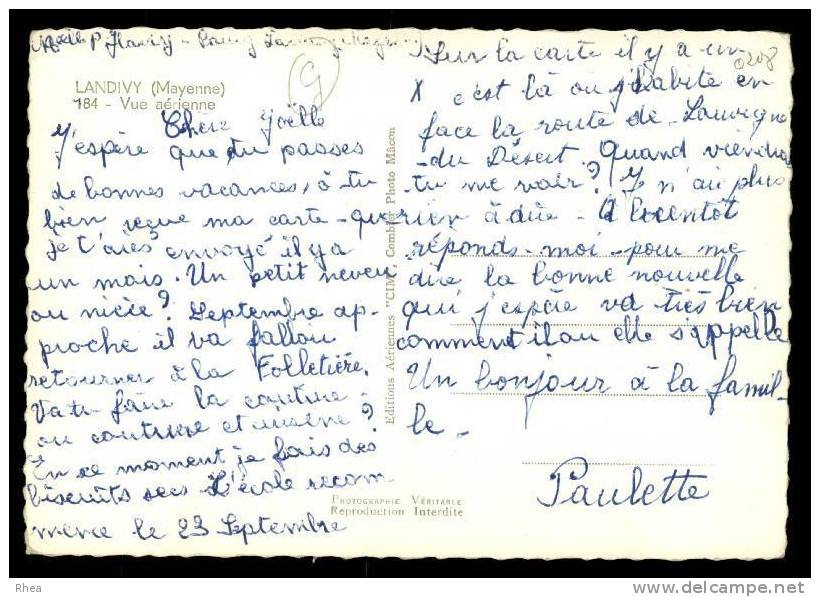 LANDIVY (Mayenne)
184 - Vue aérienne
Chère Joëlle
J'espère que tu passes
de bonnes vacances, à tu
bien reçue ma carte - que
je t'aies envoyé il y a
un mois. Un petit neveu
ou nièce? Septembre ap-
proche il va falloir
retourner à la Folletière,
Va tu faire la couture -
ou couture et cuisine?
En ce moment je fais des
biscuits secs L'école recom
mence le 23 Septembre
Editions Aériennes "CIM" Combier Photo Mâcon
PHOTOGRAPHIE VÉRITABLE
Reproduction Interdite
Sur la carte il y a un
0208
X c'est là ou j'habite en
face la route de - Louvigné
-du Désert. Quand viendras
tu me voir? Je n'ai plus
rien à dire - A bientôt
réponds-moi - pour me
dire la bonne nouvelle
qui j'espère va très bien
comment il ou elle s'appelle
Un bonjour à la famil-
le -
Paulette
G
Rhea
http://www.delcampe.net